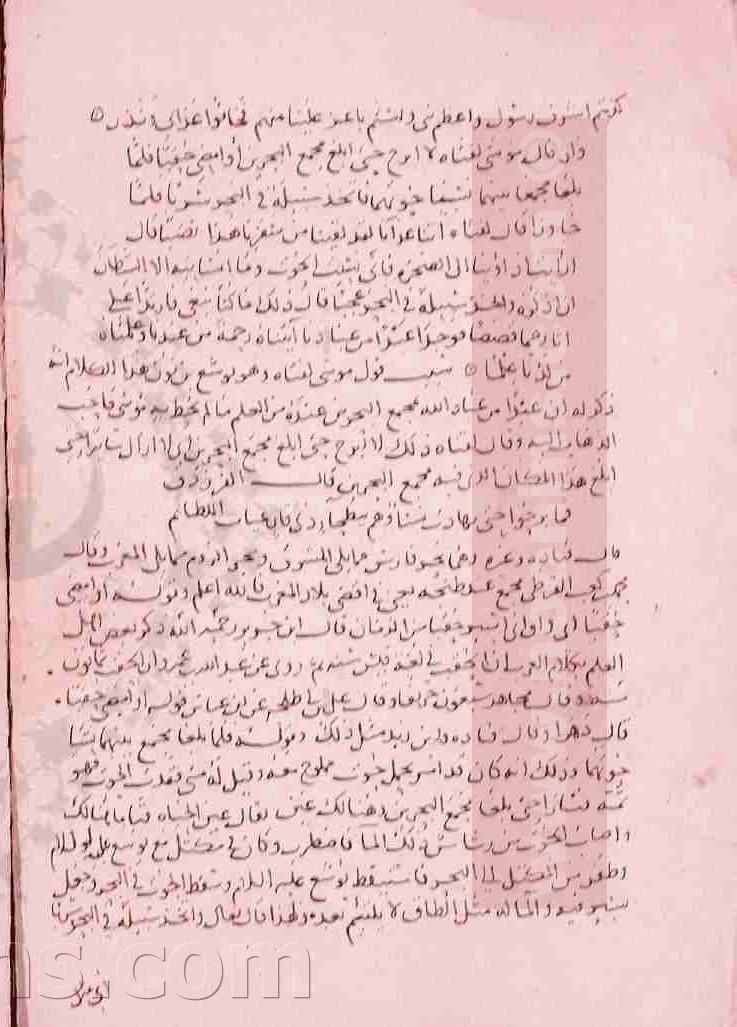 كذبتم اشرف رسول واعظم نبي ولستم باعز علينا منهم فخافوا عذابي ونذر ه
واذ قال موسى لفتاه لا ابرح حتى ابلغ مجمع البحرين أو امضي حقبا فلما
بلغا مجمع بينهما نسيا حوتهما فاتخذ سبيله في البحر سربا فلما
جاوزا قال لفتاه اتنا غدآنا لقد لقينا من سفرنا هذا نصبا قال
ارأيت اذ اوينا الى الصخرة فاني نسيت الحوت وما انسانيه الا الشيطان
ان اذكره واتخذ سبيله في البحر عجبا قال ذلك ما كنا نبغي فارتدا على
اثارهما قصصا فوجدا عبدًا من عبادنا آتيناه رحمة من عندنا وعلمناه
من لدنا علما ه سبب قول موسى لفتاه وهو يوشع بن نون هذا الكلام انه
ذكر له ان عبدًا من عباد الله بمجمع البحرين عنده من العلم ما لم يحط به موسى فاحب
الذهاب اليه وقال لفتاه ذلك لا ابرح حتى ابلغ مجمع البحرين اي لا ازال سائرا حتى
ابلغ هذا المكان الذي فيه مجمع البحرين قال الفرزدق
فما برحوا حتى تهادت نساؤهم ببطحاء ذي قار عياب اللطائم
قال قتاده وغيره وهما بحر فارس مما يلي المشرق وبحر الروم مما يلي المغرب وقال
محمد بن كعب القرظي مجمع عند طنجه يعني في اقصى بلاد المغرب فالله اعلم وقوله او امضي
حقبا اي ولو اني اسير حقبا من الزمان قال ابن جرير رحمه الله ذكر بعض اهل
العلم بكلام العرب ان الحقب في لغة قيس سنه ثم روى عن عبد الله بن عمرو ان الحقب ثمانون
سنه وقال مجاهد سبعون خريفا وقال علي بن ابي طلحه عن ابن عباس قوله او امضي حقبا
قال دهرا وقال قتاده وابن زيد مثل ذلك وقوله فلما بلغا مجمع بينهما نسيا
حوتهما وذلك انه كان قد امر بحمل حوت مملوح معه وقيل له متى فقدت الحوت فهو
ثمة فسارا حتى بلغا مجمع البحرين وهنالك عين يقال عين الحياه فناما هنالك
واصاب الحوت من رشاش ذلك الما فاضطرب وكان في مكتل مع يوشع عليه السلام
وطفر من المكتل الى البحر فاستيقظ يوشع عليه السلام وسقط الحوت في البحر وجعل
يسير فيه والما له مثل الطاق لا يلتئم بعده ولهذا قال تعالى واتخذ سبيله في البحر سربا
اي مثل
ns.com